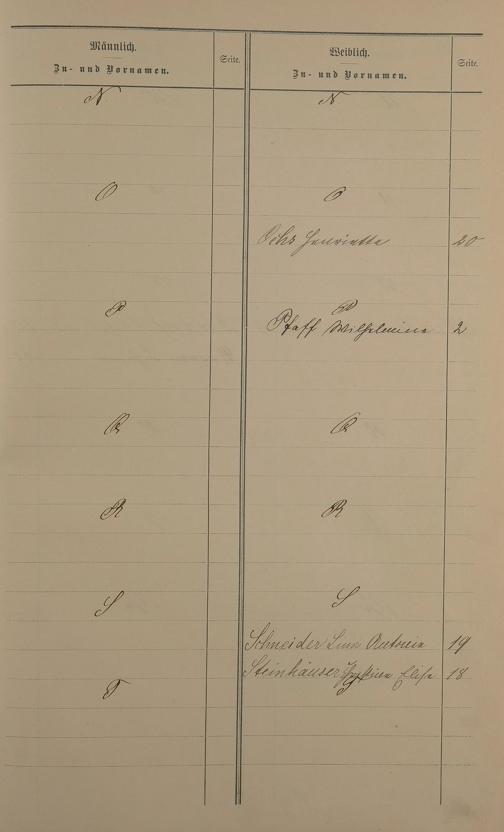 Männlich.
Zu- und Vornamen.
Seite.
N
O
P
Q
R
S
T
Weiblich.
Zu- und Vornamen.
Seite.
N
O
Ochs Henriette 20
P
Pfaff Wilhelmine 2
Q
R
S
Schneider Antonia 19
Steinhäuser Elise 18
T